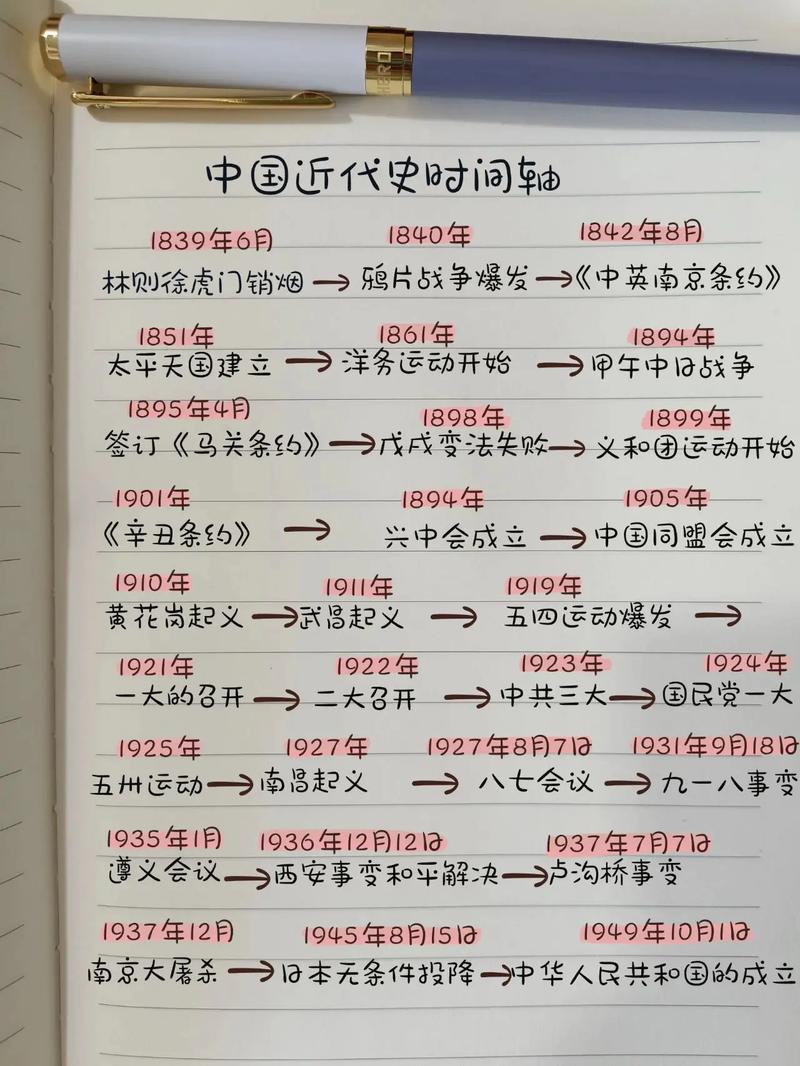 HERO
中国近代史时间轴
1839年6月 1840年 1842年8月
林则徐虎门销烟→鸦片战争爆发→《中英南京条约》
1851年 1861年 1894年
太平天国建立→洋务运动开始→甲午中日战争
1895年4月 1898年 1899年
签订《马关条约》→戊戌变法失败→义和团运动开始
1901年 1894年 1905年
《辛丑条约》→兴中会成立→中国同盟会成立
1910年 1911年 1919年
黄花岗起义→武昌起义→五四运动爆发→
1921年 1922年 1923年 1924年
一大的召开→二大召开→中共三大→国民党一大
1925年 1927年 1927年8月7日 1931年9月18日
五卅运动→南昌起义→八七会议→九一八事变
1935年1月 1936年12月12日 1937年7月7日
遵义会议→西安事变和平解决→卢沟桥事变
1937年12月 1945年8月15日 1949年10月1日
南京大屠杀→日本无条件投降→中华人民共和国的成立